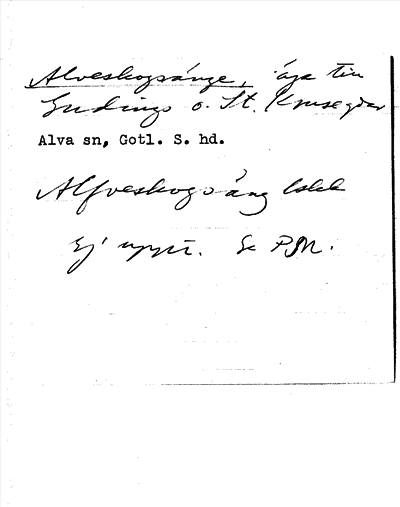 Alveskogsänge, äga till
Gudings o. St. Krusegdar
Alva sn, Gotl. S. hd.
Alfveskogsäng
Ej uppt. Se PM.